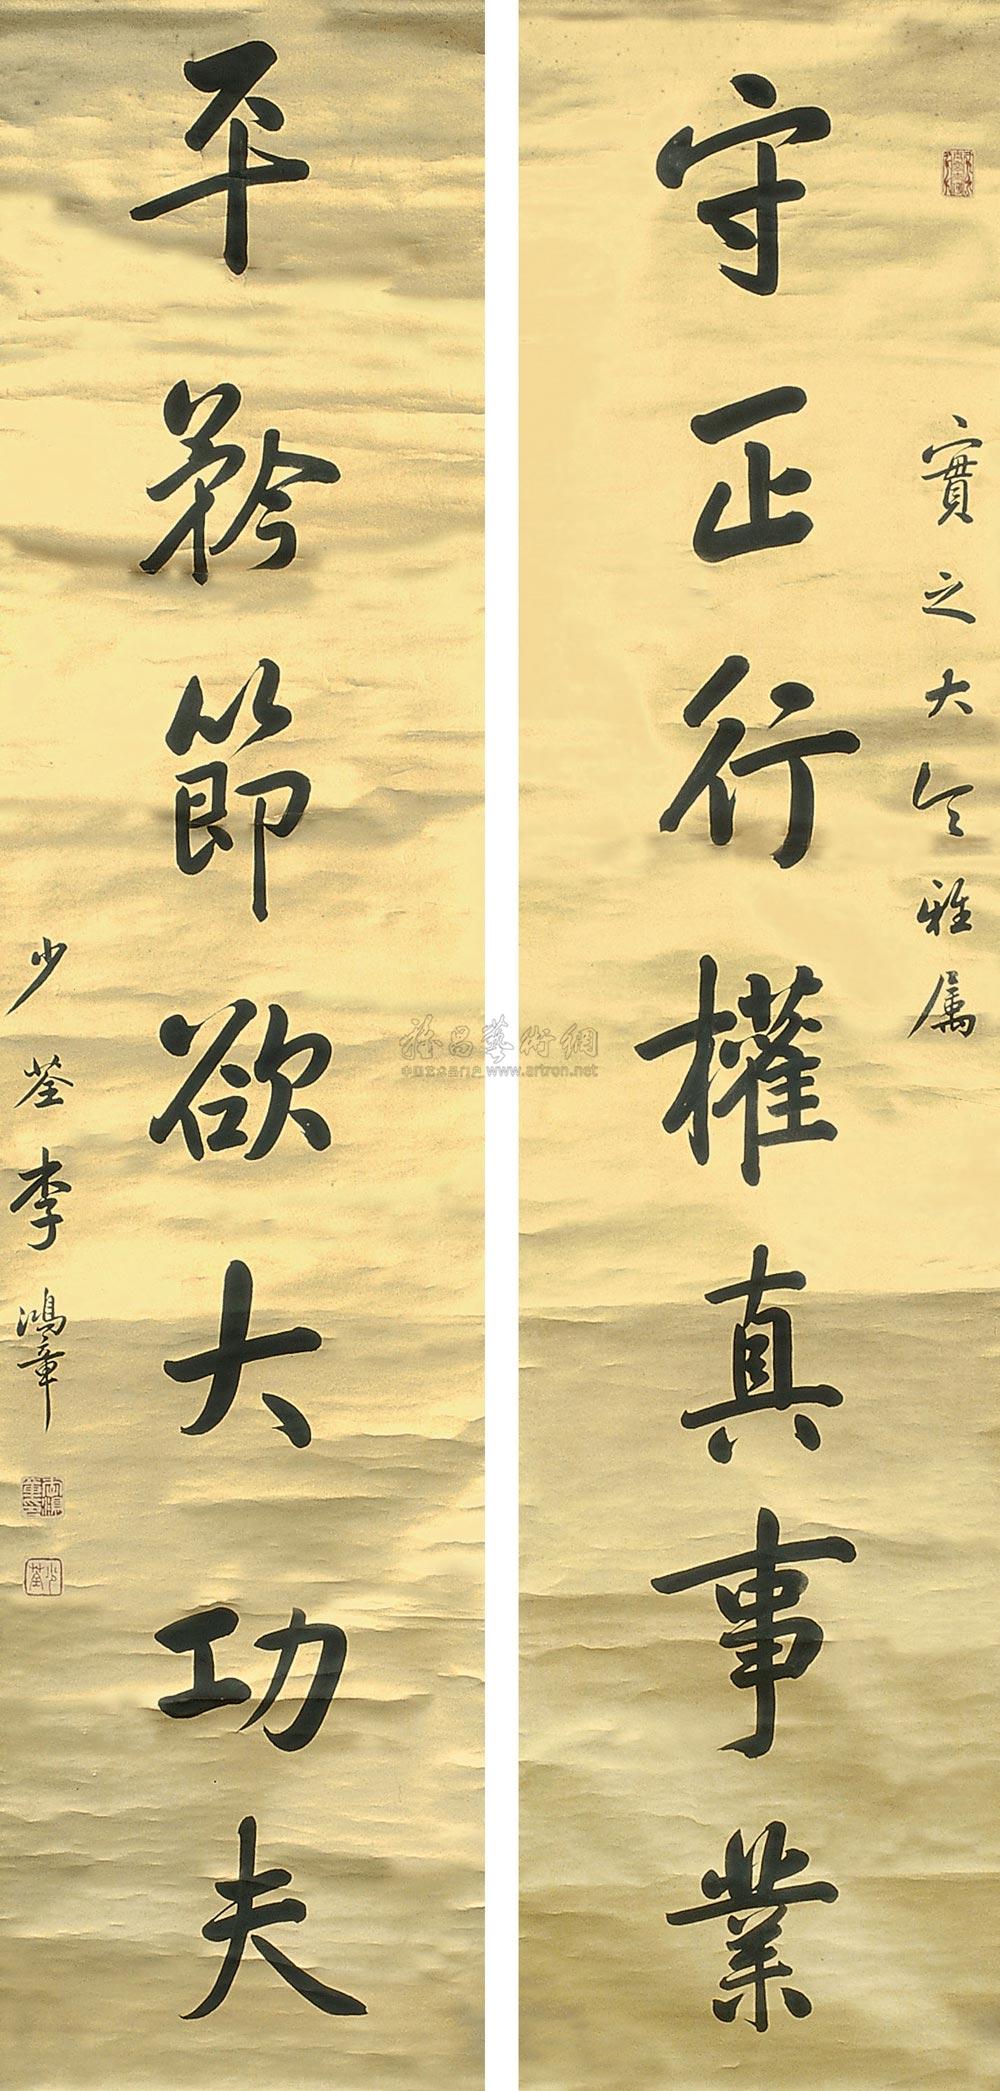 實之大令雅属
守正行權真事業
平矜節欲大功夫
少荃李鴻章
少荃
雅昌藝術網
中国艺术品门户 www.artron.net